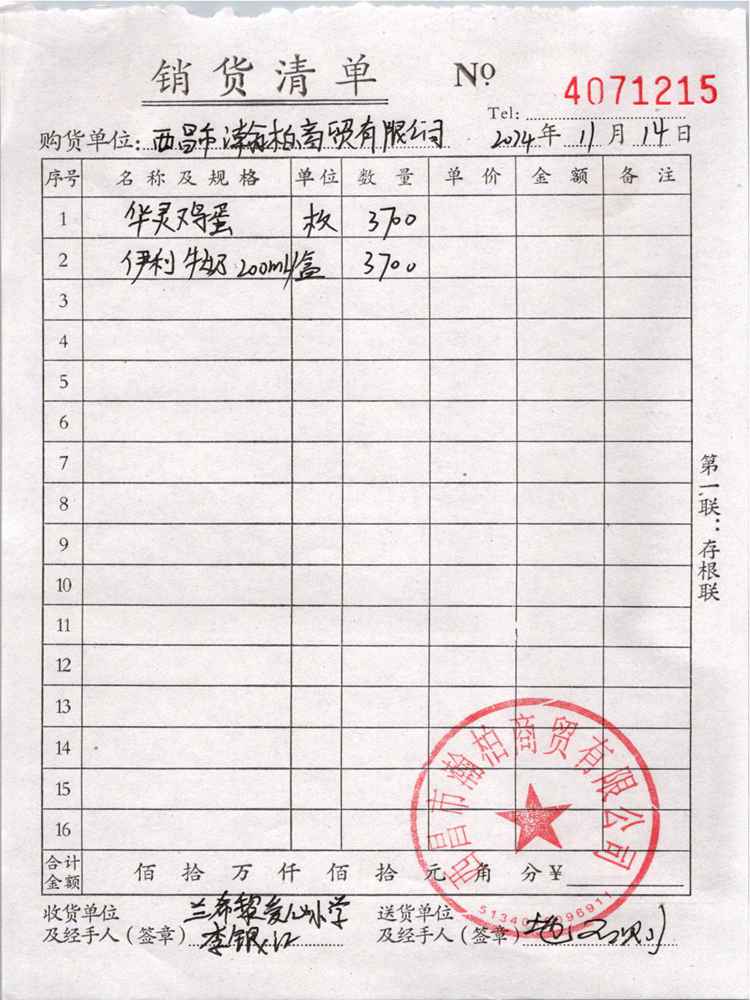 销货清单 Nº 4071215
Tel:
购货单位: 西昌市瀚柏商贸有限公司 2024年11月14日
序号 名称及规格 单位 数量 单价 金额 备注
1 华灵鸡蛋 枚 3700
2 伊利牛奶200ml 盒 3700
3
4
5
6
7
8
9
10
11
12
13
14
15
16
合计金额 佰拾万仟佰拾元角分¥
收货单位及经手人(签章) 兰希黎爱心小学 李银江
送货单位及经手人(签章)
第一联:存根联
西昌市瀚柏商贸有限公司